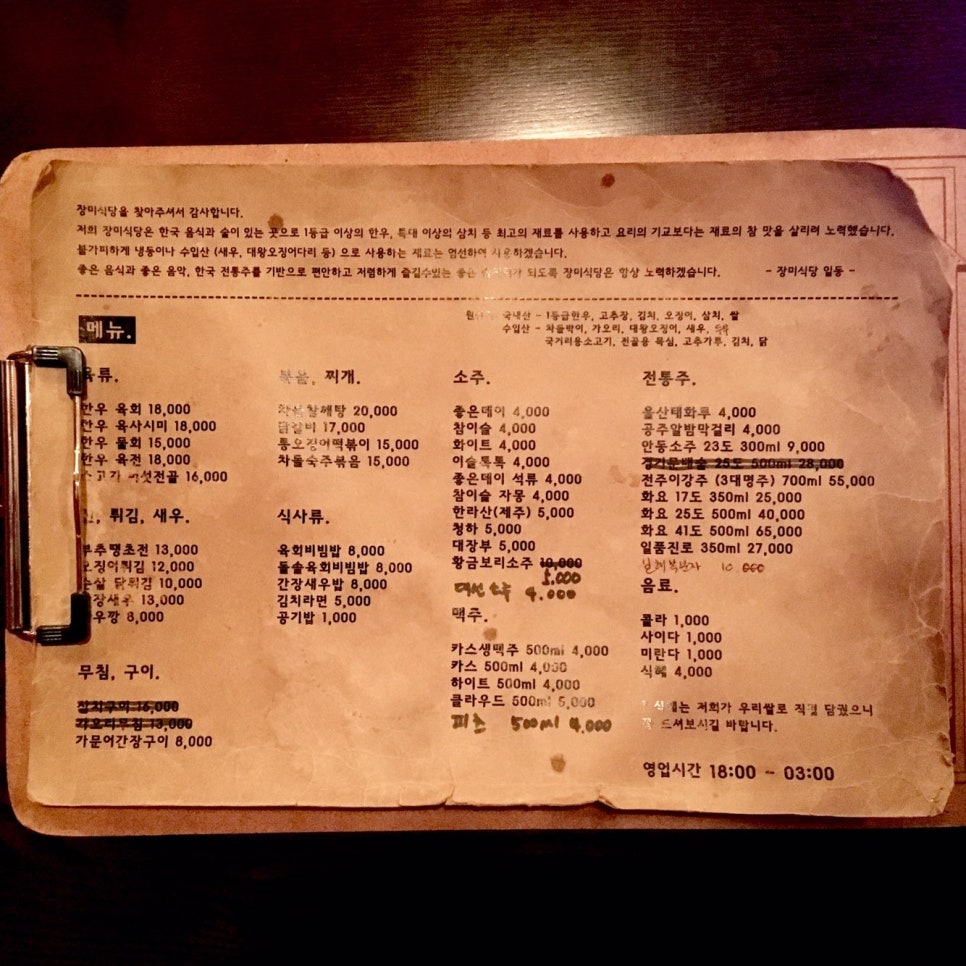 장미식당을 찾아주셔서 감사합니다.
저희 장미식당은 한국 음식과 술이 있는 곳으로 1등급 이상의 한우, 특대 이상의 삼치 등 최고의 재료를 사용하고 요리의 기교보다는 재료의 참 맛을 살리려 노력했습니다.
불가피하게 냉동이나 수입산 (새우, 대왕오징어다리 등) 으로 사용하는 재료는 엄선하여 사용하겠습니다.
좋은 음식과 좋은 음악, 한국 전통주를 기반으로 편안하고 저렴하게 즐길수있는 좋은 되도록 장미식당은 항상 노력하겠습니다. - 장미식당 일동 -
국내산 - 1등급한우, 고추장, 김치, 오징어, 삼치, 쌀
수입산 - 차돌박이, 가오리, 대왕오징어, 새우,
국거리용소고기, 전골용 목심, 고추가루, 김치, 닭
메뉴.
육류.
한우 육회 18,000
한우 육사시미 18,000
한우 물회 15,000
한우 육전 18,000
소고기 버섯전골 16,000
전, 튀김, 새우.
부추땡초전 13,000
오징어튀김 12,000
순살 닭튀김 10,000
간장새우 13,000
새우깡 8,000
무침, 구이.
삼치구이 16,000
가오리무침 13,000
가문어간장구이 8,000
볶음, 찌개.
20,000
닭갈비 17,000
통오징어떡볶이 15,000
차돌숙주볶음 15,000
식사류.
육회비빔밥 8,000
돌솥육회비빔밥 8,000
간장새우밥 8,000
김치라면 5,000
공기밥 1,000
소주.
좋은데이 4,000
참이슬 4,000
화이트 4,000
이슬톡톡 4,000
좋은데이 석류 4,000
참이슬 자몽 4,000
한라산(제주) 5,000
청하 5,000
대장부 5,000
황금보리소주 10,000
5,000
대선 소주 4,000
맥주.
카스생맥주 500ml 4,000
카스 500ml 4,000
하이트 500ml 4,000
클라우드 500ml 5,000
피츠 500ml 4,000
전통주.
울산태화루 4,000
공주알밤막걸리 4,000
안동소주 23도 300ml 9,000
경기문배술 25도 500ml 28,000
전주이강주 (3대명주) 700ml 55,000
화요 17도 350ml 25,000
화요 25도 500ml 40,000
화요 41도 500ml 65,000
일품진로 350ml 27,000
보해복분자 10,000
음료.
콜라 1,000
사이다 1,000
미란다 1,000
식혜 4,000
식혜는 저희가 우리쌀로 직접 담궜으니
꼭 드셔보시길 바랍니다.
영업시간 18:00 ~ 03:00